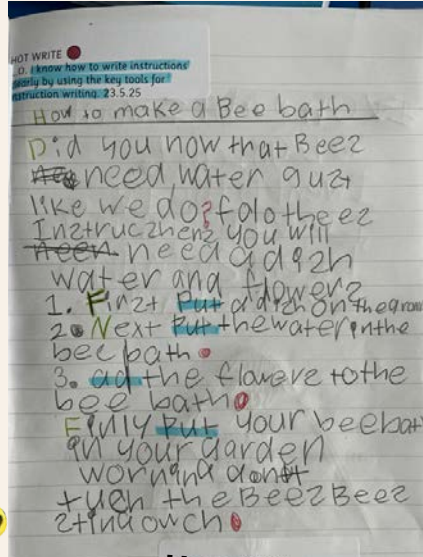 HOT WRITE
L.O. I know how to write instructions
clearly by using the key tools for
instruction writing. 23.5.25
How to make a Bee bath
Did you now that Beez
need water guzt
like we do? folo theez
Inztruczhenz you will
need a dizh
water and flowerz
1. Finzt Put a dizh on the grow
2. Next Put the water in the
bee bath.
3. ad the flowerz to the
bee bath.
Finly Put your bee bat
in your garden
worning dont
tuch the Beez Beez
zting owch.